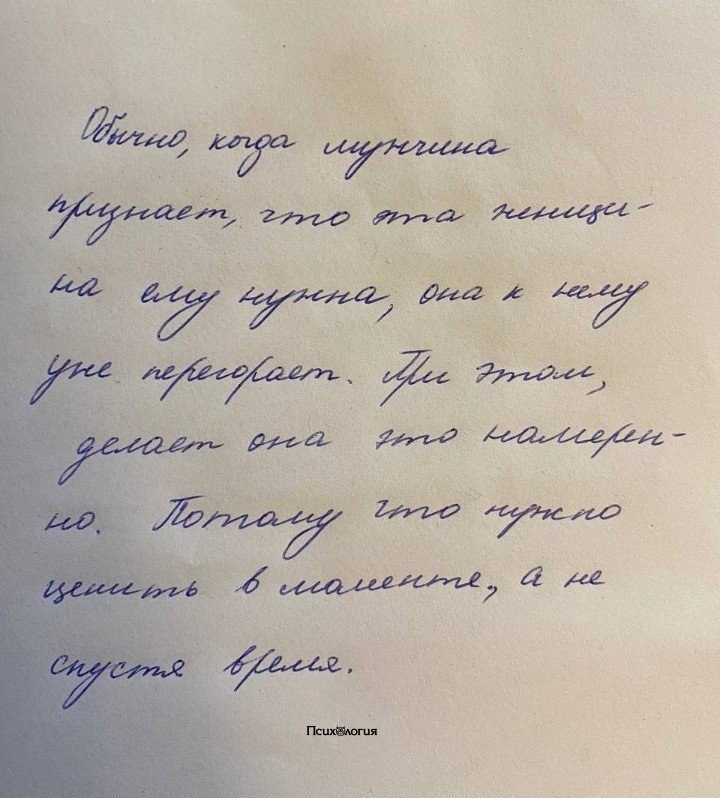 Обычно, когда мужчина
признает, что эта женщи-
на ему нужна, она к нему
уже перегорает. При этом,
делает она это намерен-
но. Потому что нужно
ценить в моменте, а не
спустя время.
Психология